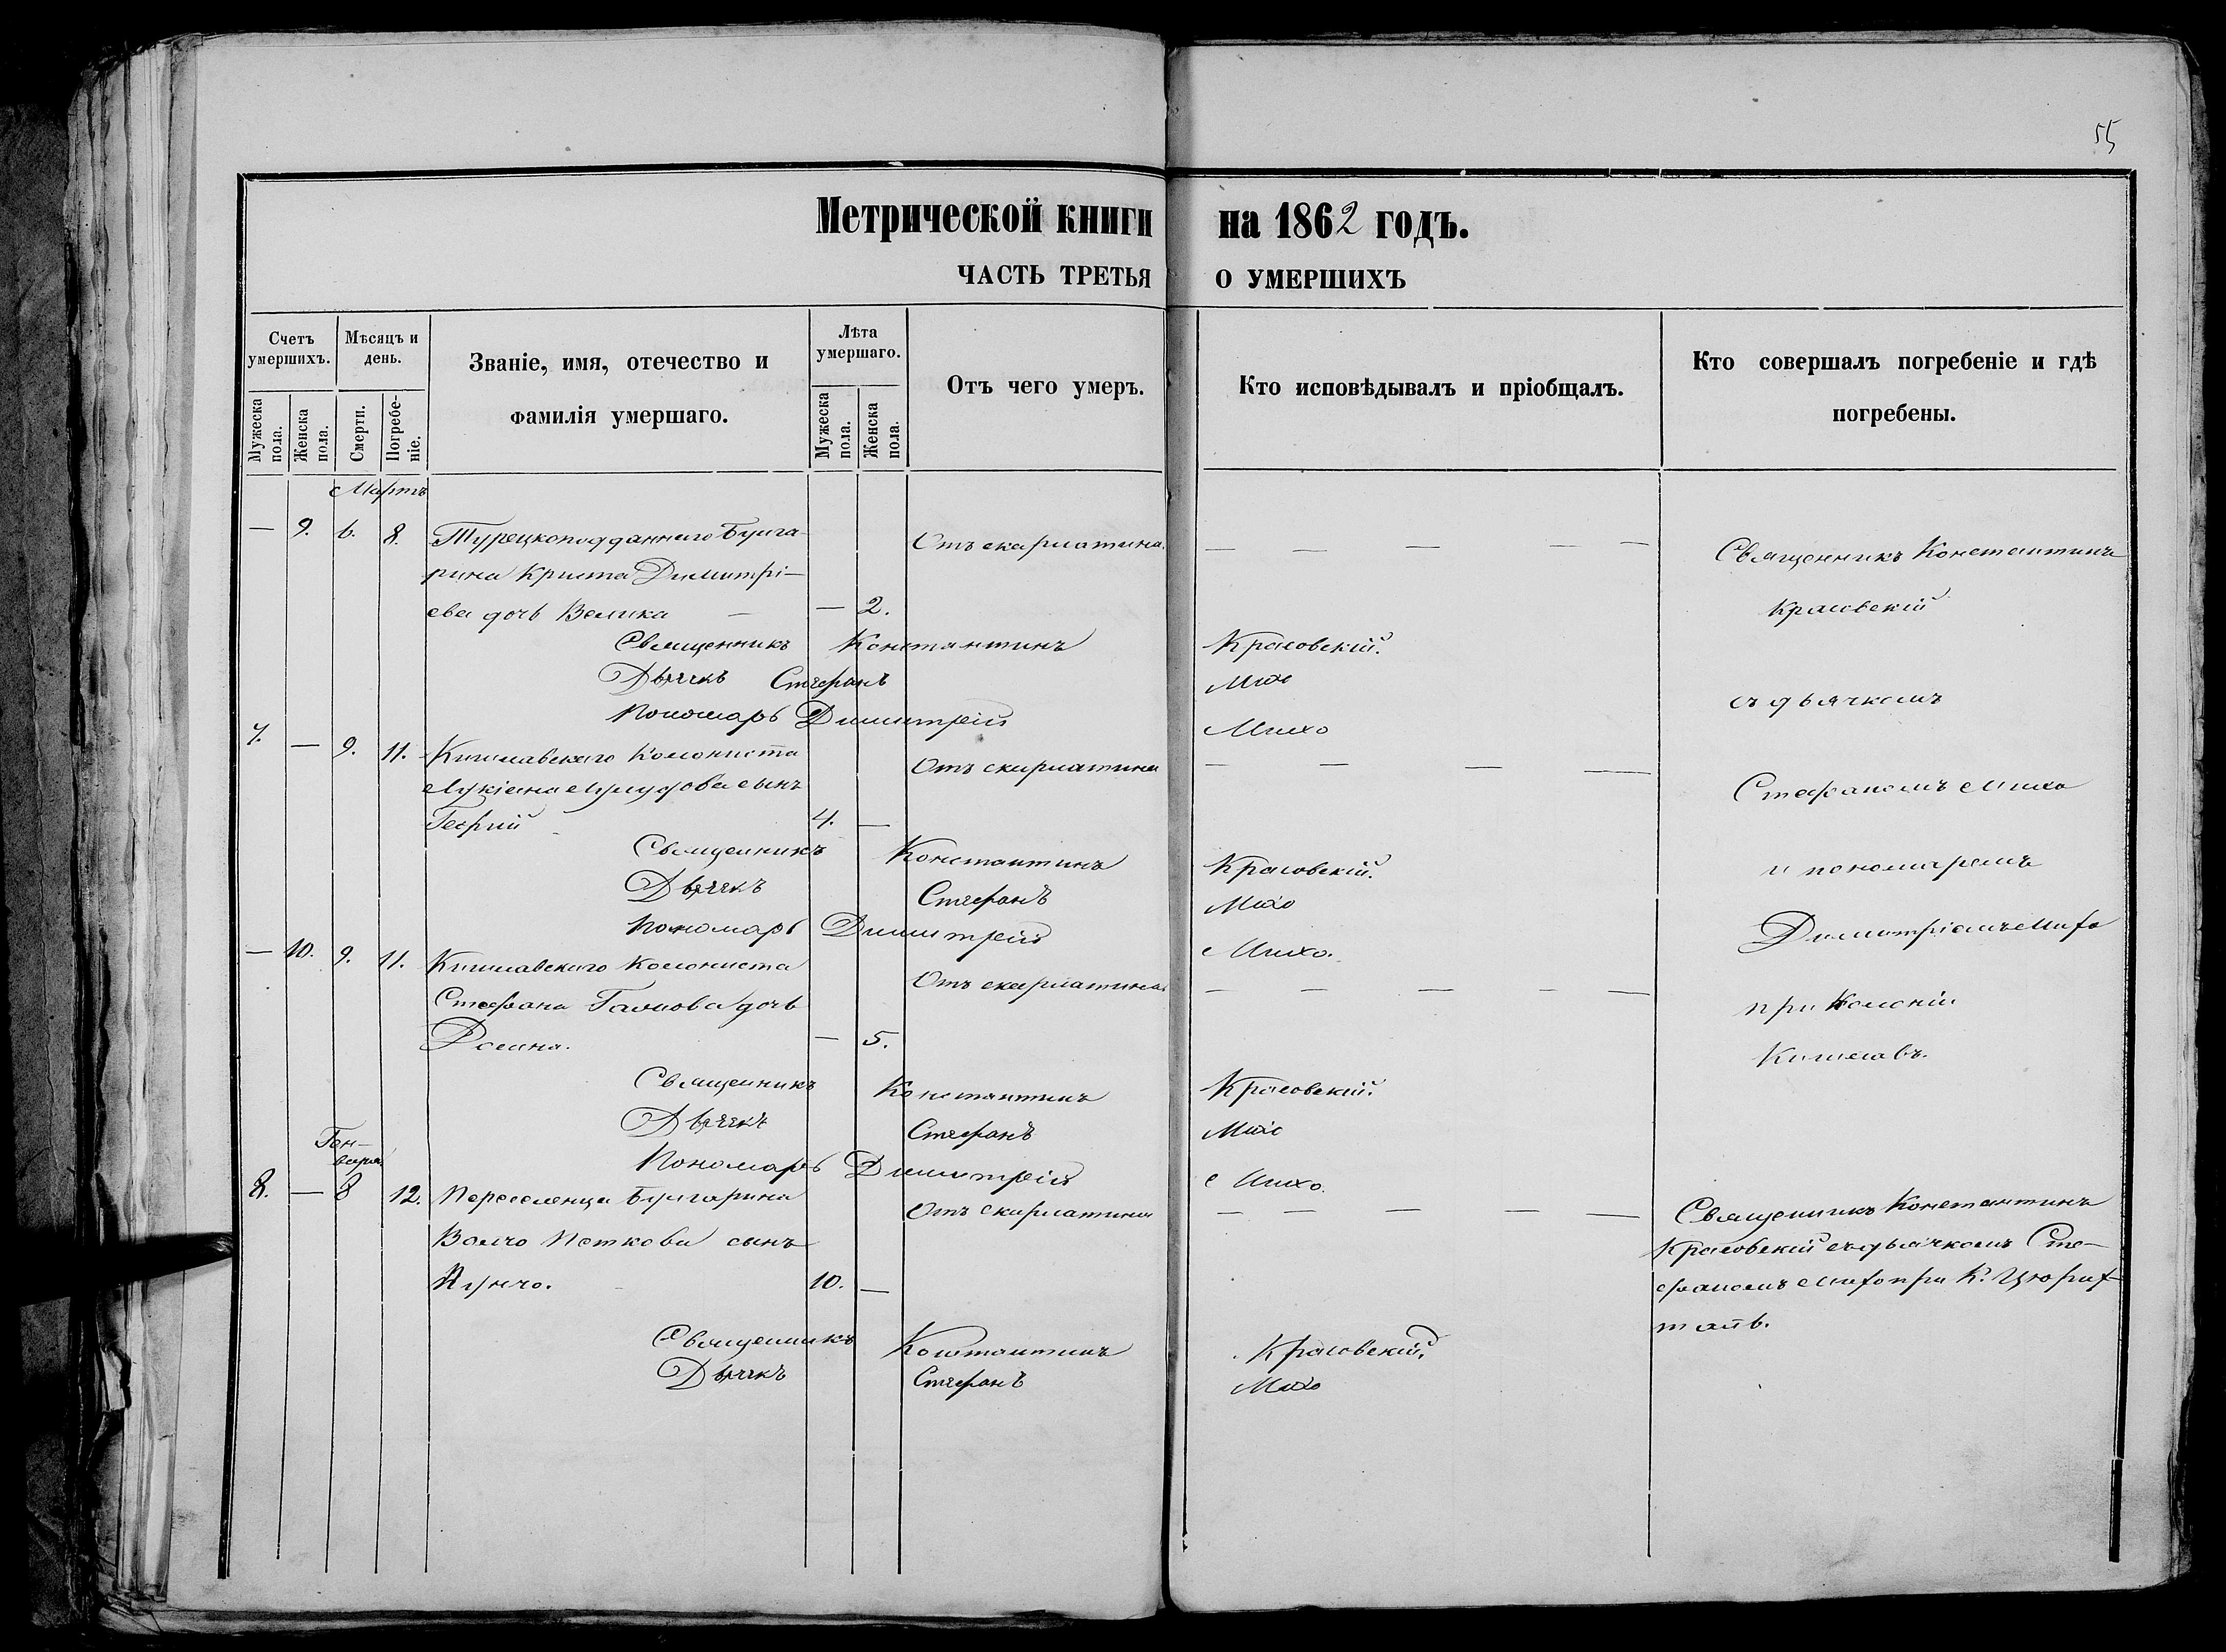 55
Метрической книги на 1862 годъ.
ЧАСТЬ ТРЕТЬЯ О УМЕРШИХЪ
Счетъ умершихъ.
Мѣсяцъ и день.
Званіе, имя, отечество и фамилія умершаго.
Лѣта умершаго.
Отъ чего умеръ.
Кто исповѣдывалъ и пріобщалъ.
Кто совершалъ погребеніе и гдѣ погребены.
Мужеска пола.
Женска пола.
Смерти.
Погребе-ніе.
Мужеска пола.
Женска пола.
Мартъ
— 9. 6. 8. Турецкоподданнаго Булга-
рина Криста Димитрі-
ева дочь Велика — — 2.
Отъ скарлатины.
— — — — —
Священникъ Константинъ Красовскій.
Дьячекъ Стефанъ Михо
Пономарь Димитрій Михо
7. — 9. 11. Кишлавскаго Колониста
Лукіана сынъ
Георгій 4. —
Отъ скарлатины
— — — —
Священникъ Константинъ Красовскій.
Дьячекъ Стефанъ Михо
Пономарь Димитрій Михо.
— 10. 9. 11. Кишлавскаго Колониста
Стефана дочь
— 5.
Отъ скарлатины
— — — — —
Священникъ Константинъ Красовскій.
Дьячекъ Стефанъ Михо
Пономарь Димитрій Михо.
Священникъ Константинъ
Красовскій
съ дьячкомъ
Стефаномъ Михо
и пономаремъ
Димитріемъ Михо
при Колоніи
Кишлавъ.
Ген-
варя
8. — 8 12. Переселенца Булгарина
Волчо Петкова сынъ
10. —
Отъ скарлатины
— — — — —
Священникъ Константинъ
Красовскій съ дьячкомъ Сте-
фаномъ Михо при К. Цюрих-
талѣ.
Священникъ Константинъ Красовскій.
Дьячекъ Стефанъ Михо